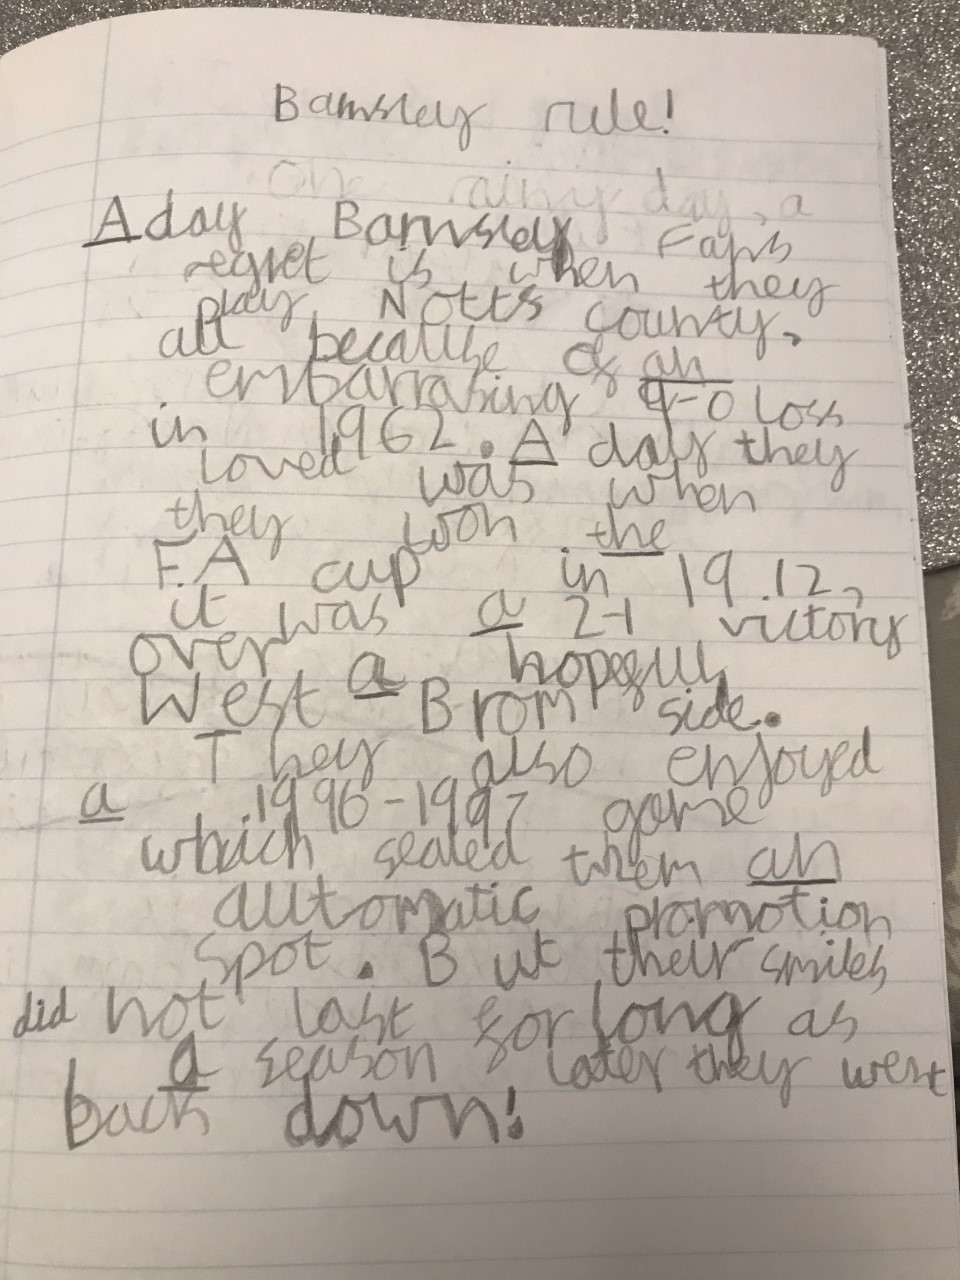 Barnsley rule!
One rainy day, a
A day Barnsley Fans
regret is when they
play Notts county,
all because of an
embarrasing 9-0 loss
in 1962. A day they
loved was when
they won the
F.A cup in 19.12,
it was a 2-1 victory
over a hopeful
West Brom side.
They also enjoyed
a 1996-1997 game
which sealed them an
automatic promotion
spot. But their smiles
did not last for long as
a season later they went
back down!